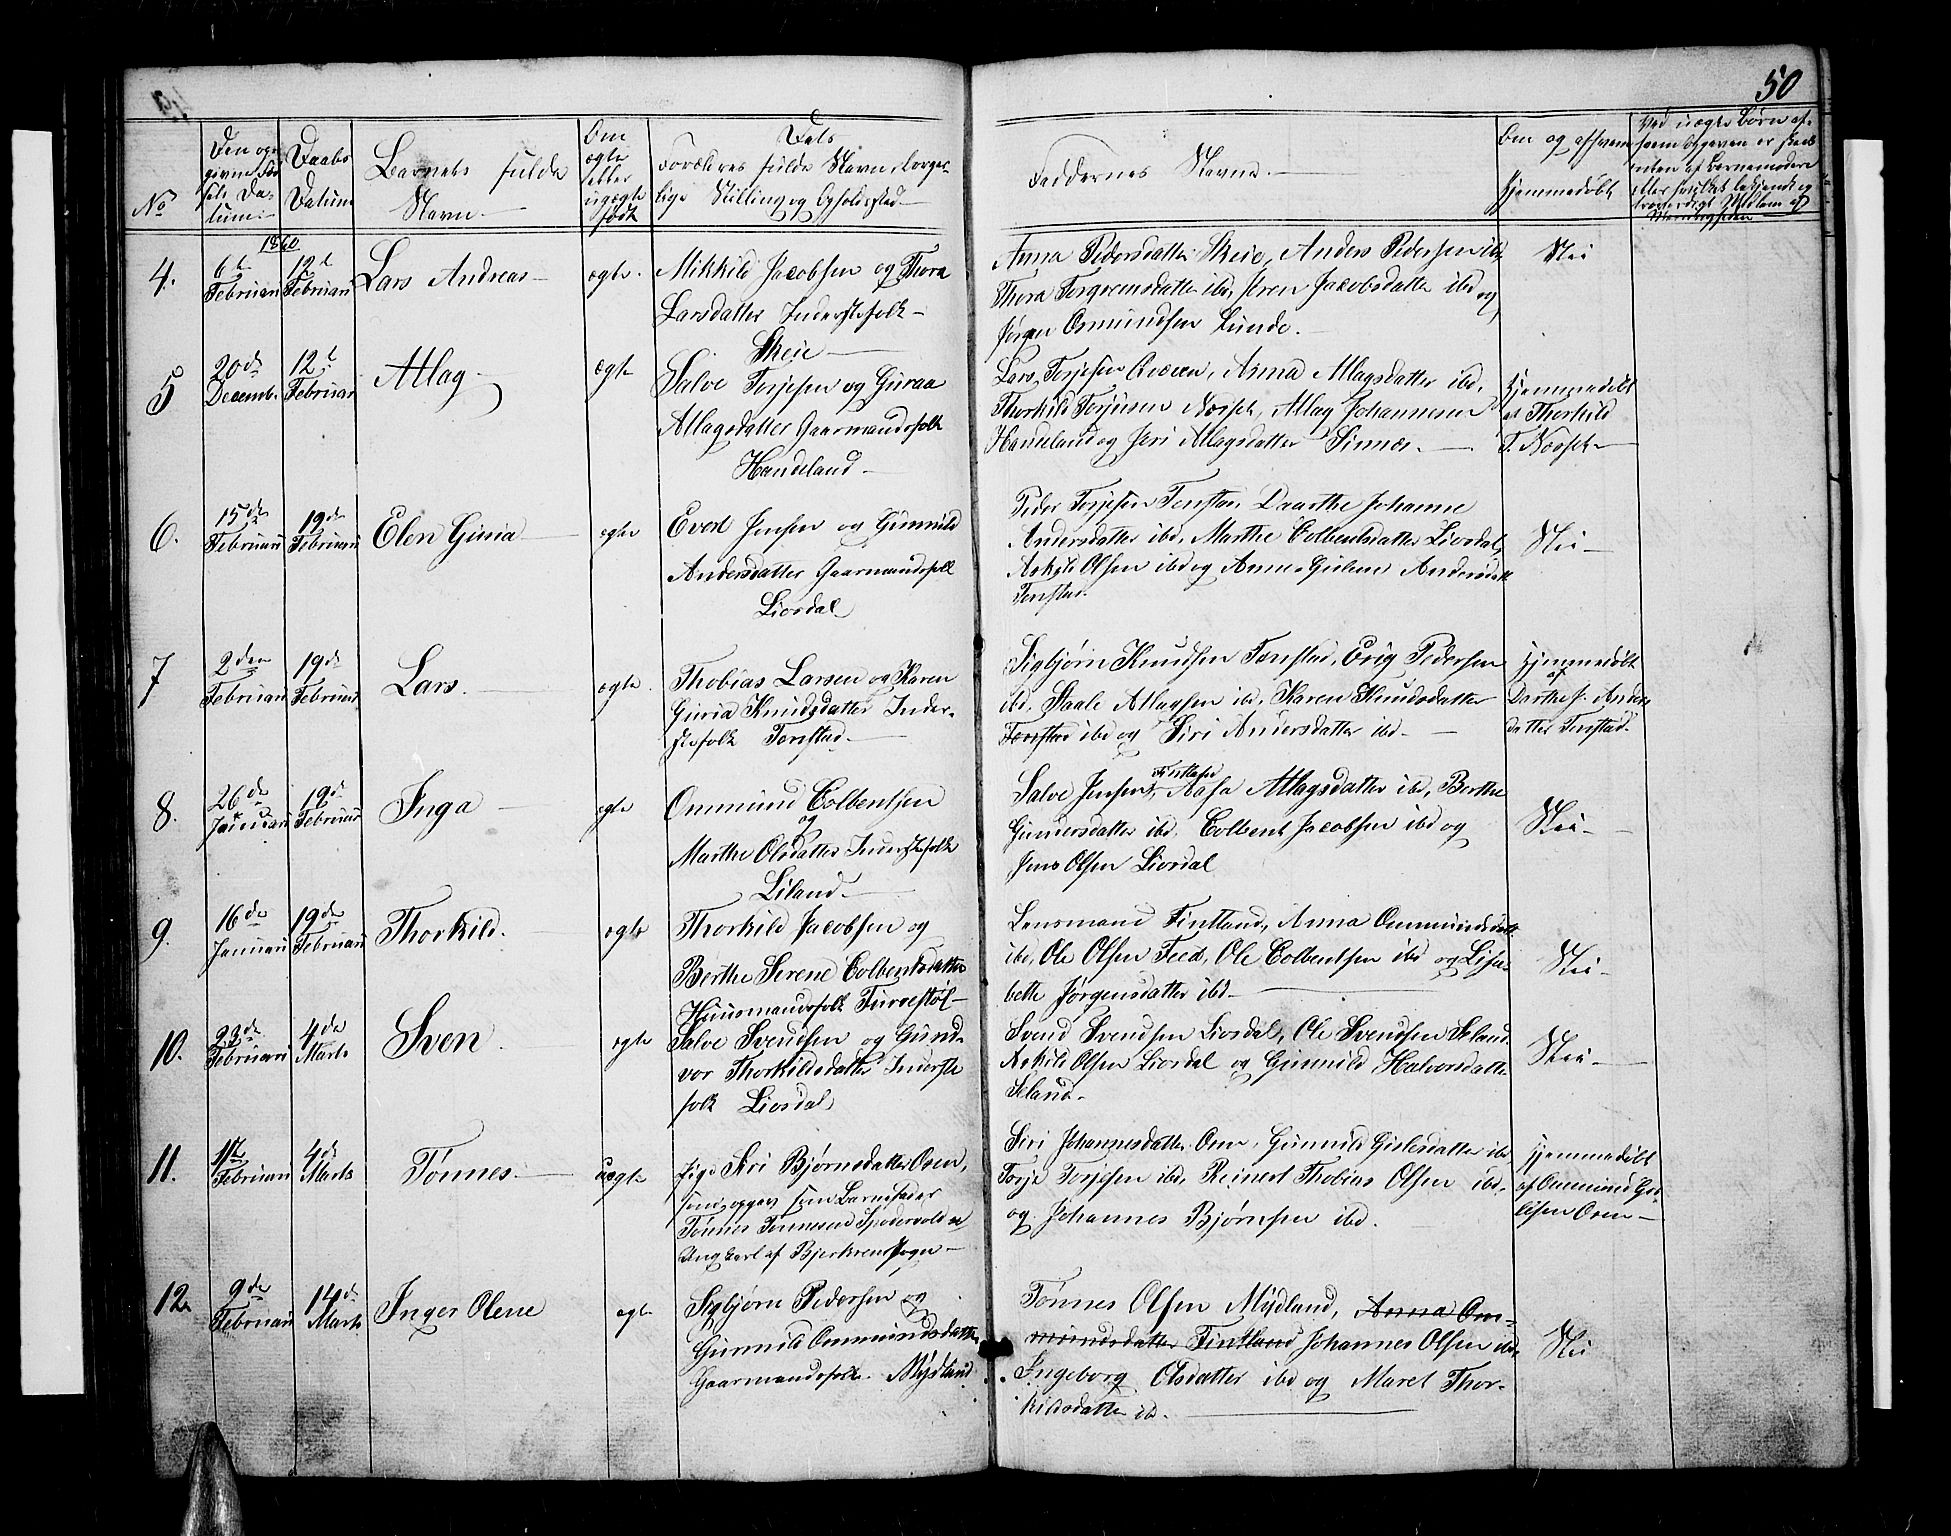 50
No
Den op-
givne Fød-
sels Da-
tum
Daabs
Datum
Barnets fulde
Navn.
Om
ægte
eller
uægte
født
Dets
Forældres fulde Navne, borger-
lige Stilling og Opholdssted
Faddernes Navne.
Om og af hvem
hjemmedøbt
Ved uægte Børn af
1860
4.
6te
Februari
12te
Februari
Lars Andreas
ægte
Mikkild Jacobsen og Thora
Larsdatter Inderstefolk
Skeie
Anna Pedersdatter Skeie, Anders Pedersen ibd,
Thora Torgrensdatter ibd, Jren Jacobsdatter ibd og
Jørgen Osmundsen Lunde.
Nei
5
20de
Decemb.
12te
Februari
Atlag
ægte
Salve Torjesen og Guroa
Atlagsdatter Gaarmandsfolk
Handeland
Lars Torjesen Aaen, Anna Atlagsdatter ibd,
Thorkild Torjusen Aaisek, Atlag Johannesen
Handeland og Siri Atlagsdatter Sinnes.
Hjemmedøbt
af Thorkild
T.
6.
15de
Februari
19de
Februari
Elen Guria
ægte
Evert Jensen og Gunnild
Andersdatter Gaarmandsfolk
Liosdal
Peder Torjesen Tonstad, Daarthe Johanne
Andersdatter ibd, Marthe Colbentsdatter Liosdal,
Askild Olsen ibd og Anne Gurine Andersdatt
Tonstad.
Nei
7
2den
Februari
19de
Februari
Lars.
ægte
Thobias Larsen og Karen
Guria Knudsdatter Inder-
stefolk Tonstad.
Sigbjørn Knudsen Tonstad, Erig Pedersen
ibd, Staale Atlagsen ibd, Karen Knudsdatter
Tonstad ibd og Siri Andersdatter ibd.
Hjemmedøbt
af
Darthe J. Anders
datter Tonstad.
8.
26de
Januari
19de
Februari
Inga
ægte
Ommund Colbentsen
og
Marthe Olsdatter Inderstefolk
Liland.
Salve Jensen Fintland, Aasa Atlagsdatter ibd, Berthe
Gunersdatter ibd, Colbent Jacobsen ibd og
Jens Olsen Liosdal
Nei
9.
16de
Januari
19de
Februari
Thorkild.
ægte
Thorkild Jacobsen og
Berthe Serene Colbentsdatter
Huusmandsfolk Furrestøl
Lensmand Fintland, Anna Ommundsdatt
ibd, Ole Olsen Feed, Ole Colbentsen ibd og Lisa-
beth Jørgensdatter ibd
Nei
10.
23de
Februari
4de
Marts
Sven
ægte
Salve Svendsen og Gund-
vor Thorkildsdatter Inderste
folk Liosdal
Svend Svendsen Liosdal, Ole Svendsen Seland
Askild Olsen Liosdal og Gunnild Halvorsdatter
Seland.
Nei
11.
11te
Februari
4de
Marts
Tønnes.
uægte
Pige Siri Bjørnsdatter Osen,
som opgav som Barnefader
Tønnes Tønnesen Spodervold en
Ung Karl af Bjerkrem Sogn
Siri Johannesdatter Osen, Gunnild Gislesdatter ibd
Torje Torjesen ibd, Reinert Thobias Olsen ibd,
og Johannes Bjørnsen ibd.
Hjemmedøbt
af Ommund Gis-
lesen Osen
12.
9de
Februari
14de
Marts
Inger Olene
ægte
Sigbjørn Pedersen og
Gunnild Ommundsdatter
Gaarmandsfolk Mydland
Tønnes Olsen Mydland, Anna Om-
mundsdatter Fintland Johannes Olsen ibd,
Ingeborg Olsdatter ibd og Maret Thor-
kildsdatter ibd.
Nei